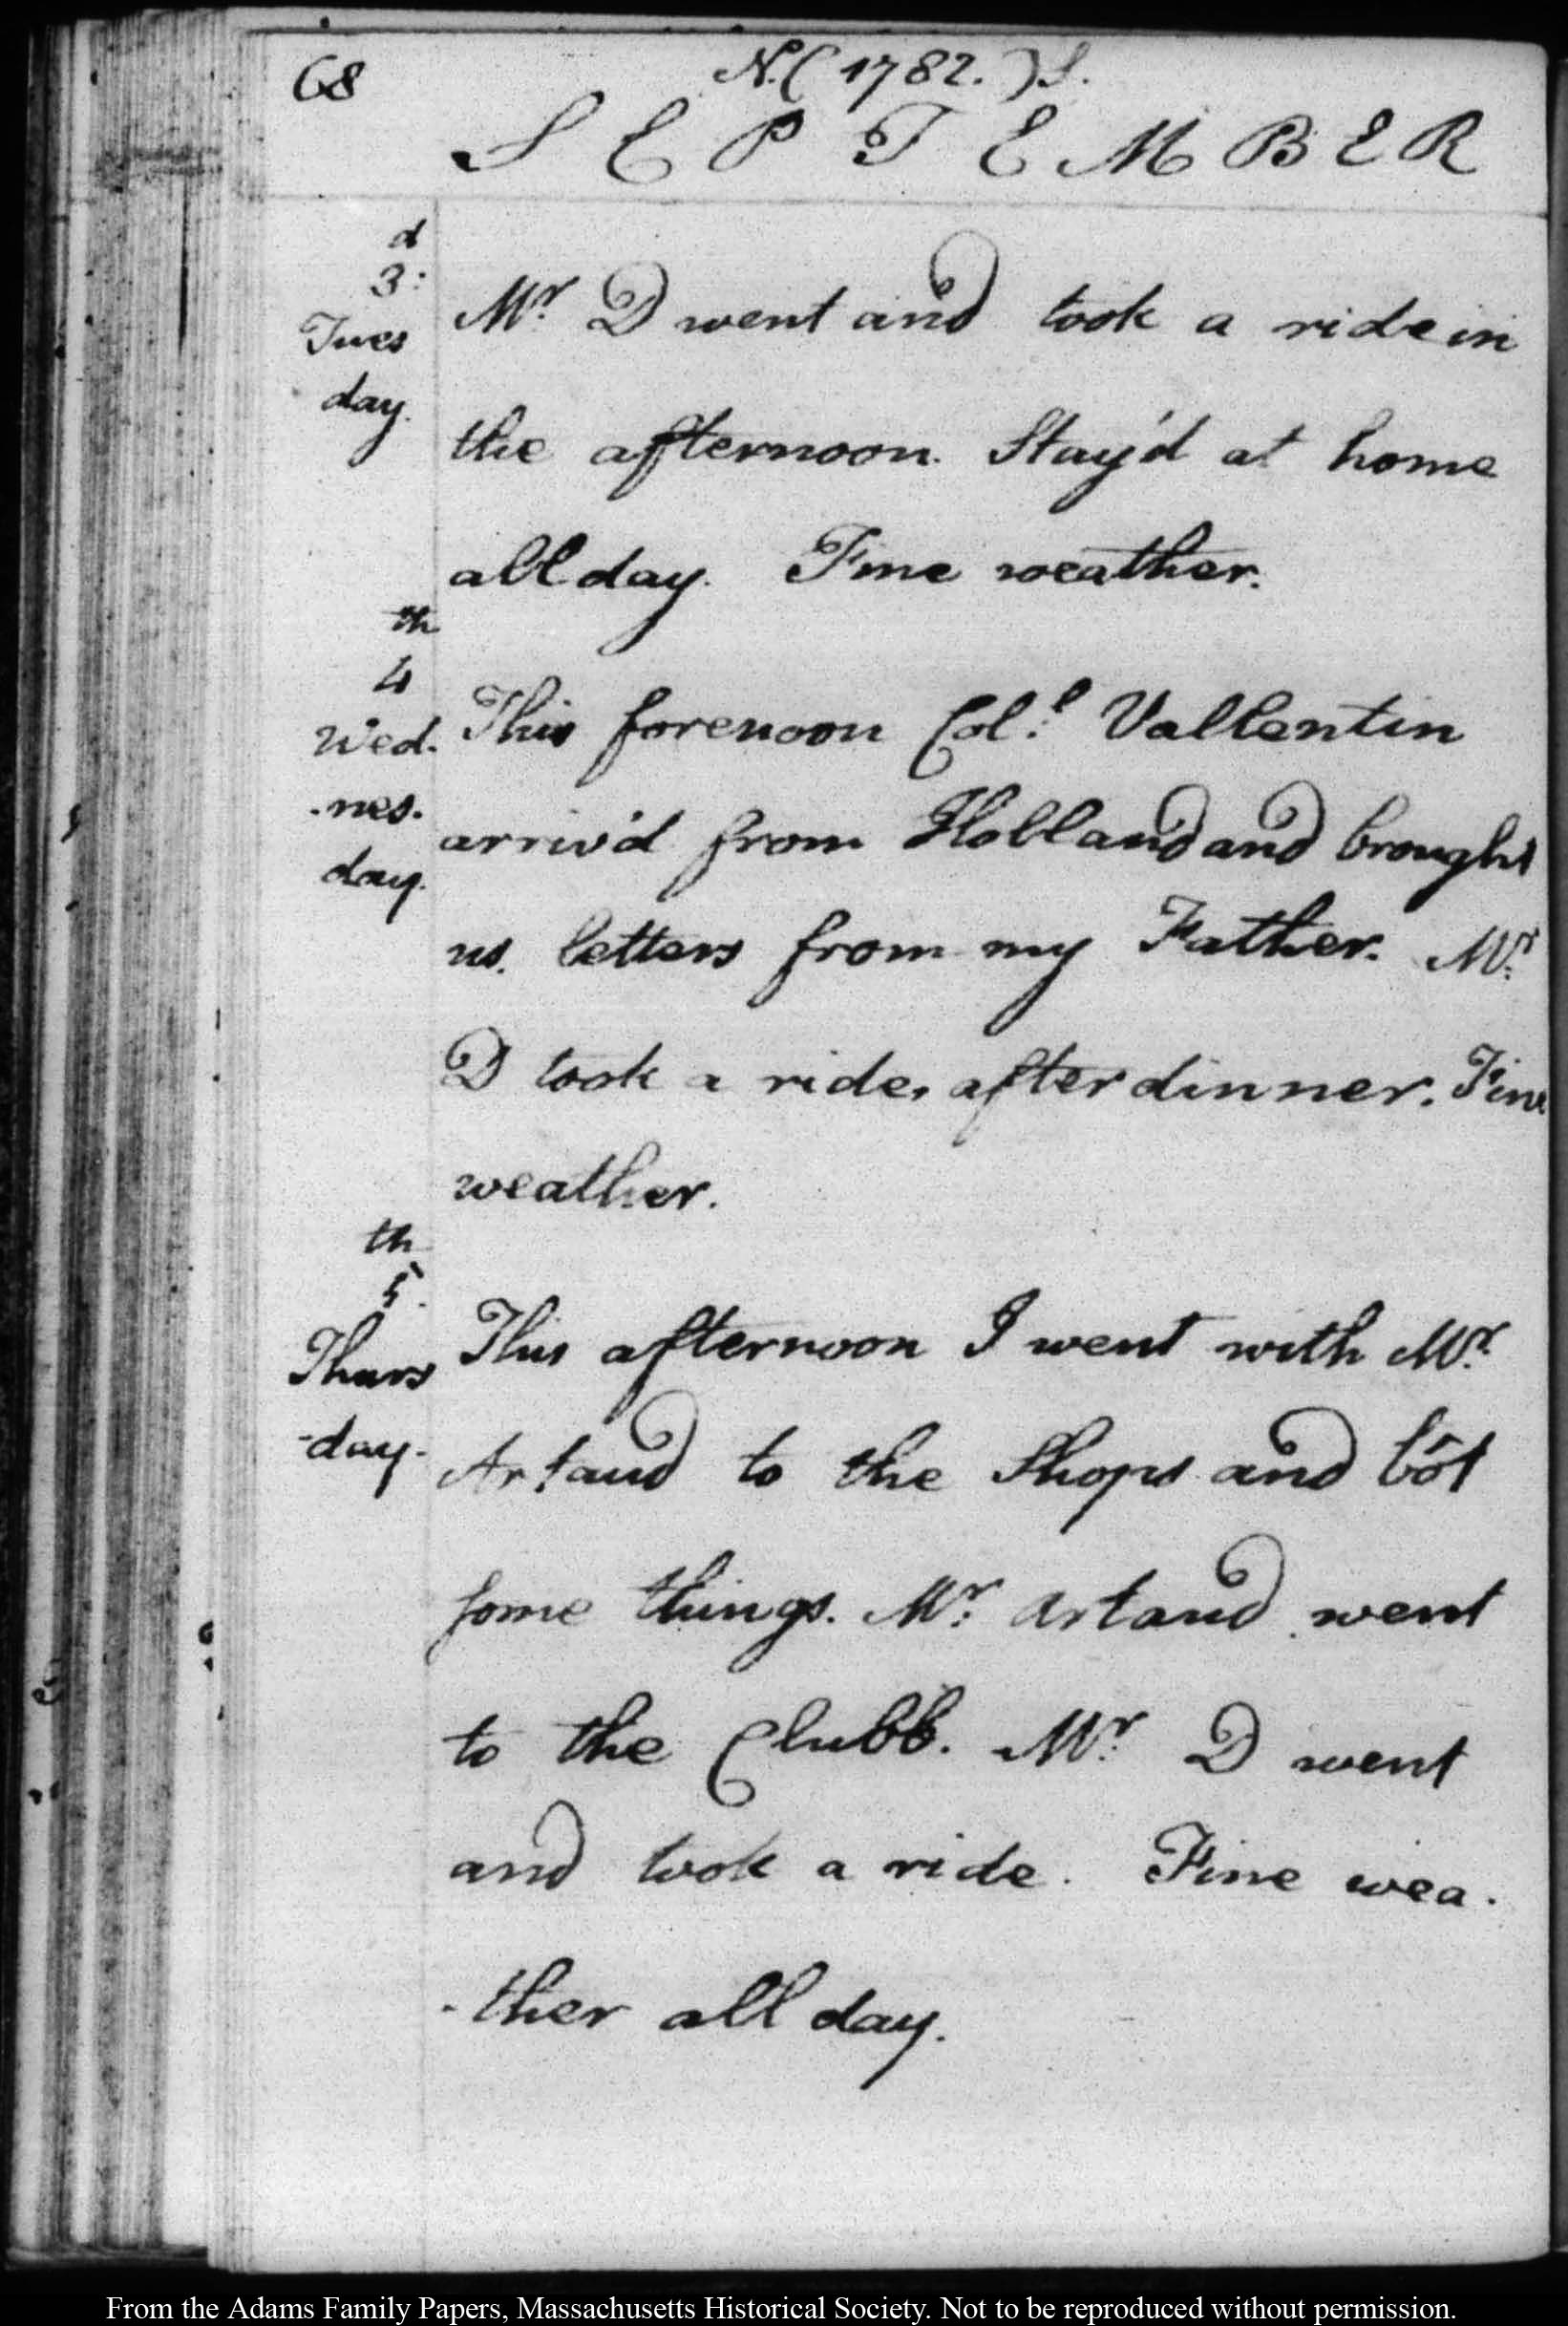 68
N. (1782.) S.
SEPTEMBER
d
3:
Tues
day.
Mr. D went and took a ride in
the afternoon. Stay'd at home
all day. Fine weather.
th
4
Wed.
-nes-
day.
This forenoon Col.l Vallentin
arriv'd from Holland and brought
us letters from my Father. Mr.
D took a ride, after dinner. Fine
weather.
th
5.
Thurs
-day.
This afternoon I went with Mr.
Artaud to the Shops and bōt
some things. Mr. Artaud went
to the Clubb. Mr. D went
and took a ride. Fine wea-
-ther all day.
From the Adams Family Papers, Massachusetts Historical Society. Not to be reproduced without permission.